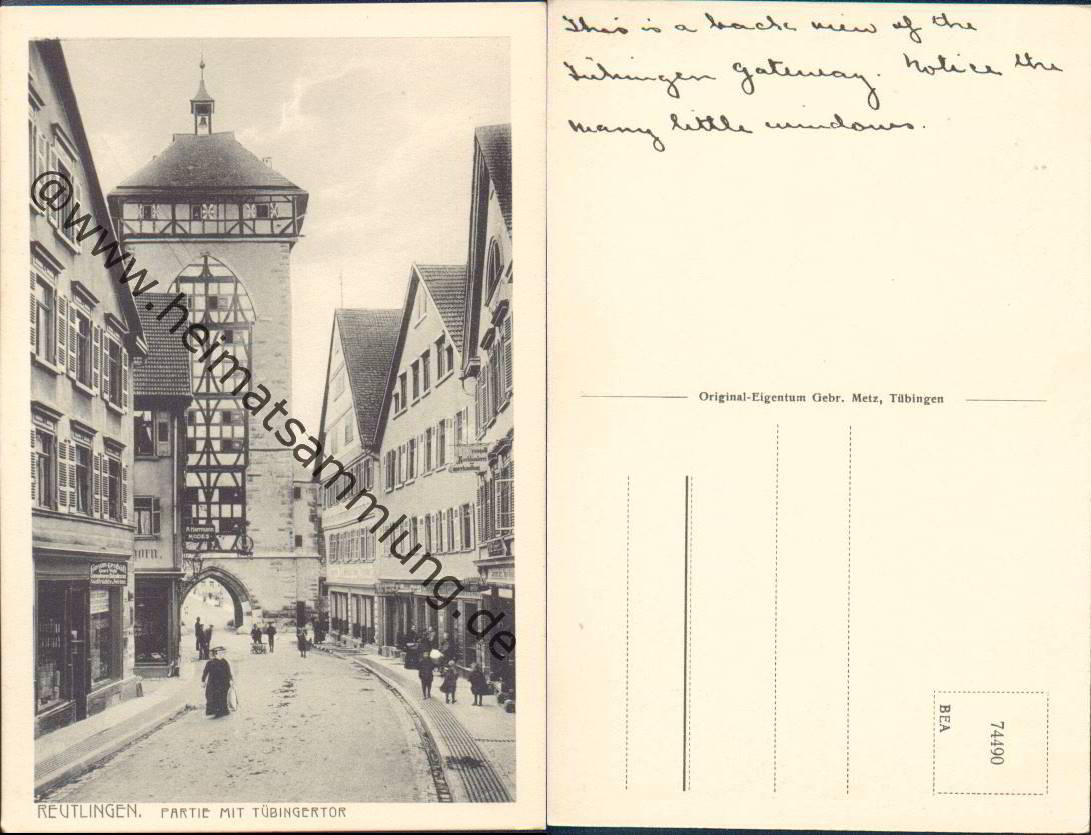 @www.heimatsammlung.de
A. Herrmann
MODES
REUTLINGEN. PARTIE MIT TÜBINGERTOR
This is a back view of the
Tübingen Gateway. Notice the
many little windows.
Original-Eigentum Gebr. Metz, Tübingen
74490
BEA